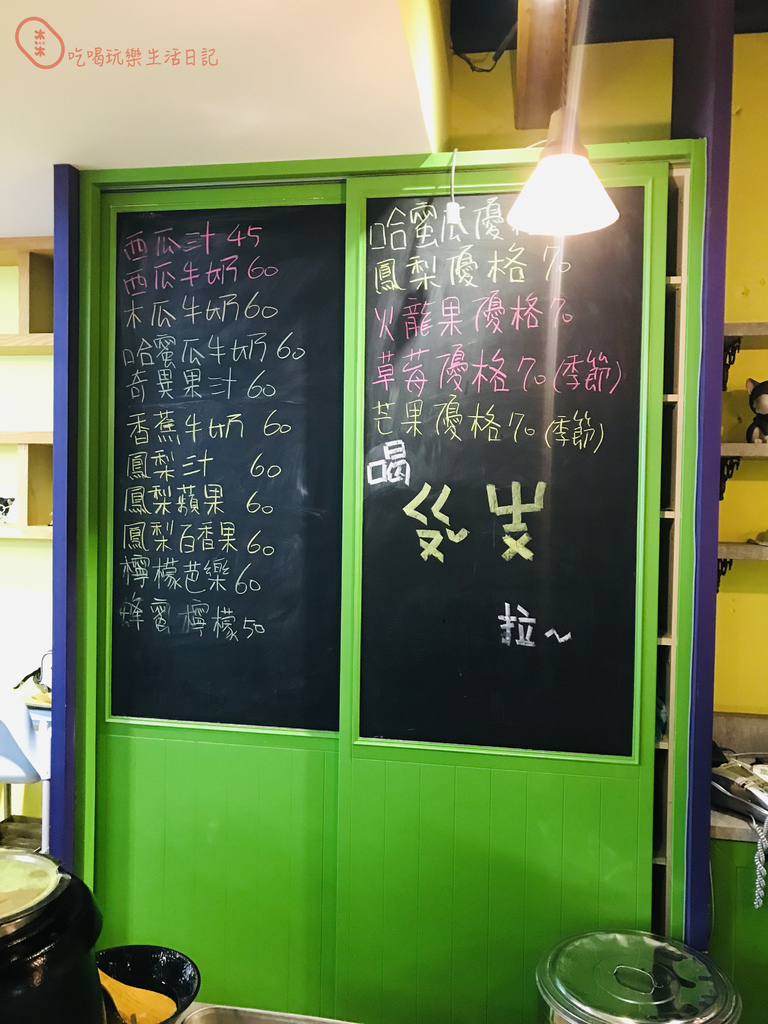 吃喝玩樂生活日記
西瓜汁 45
西瓜牛奶 60
木瓜牛奶 60
哈蜜瓜牛奶 60
奇異果汁 60
香蕉牛奶 60
鳳梨汁 60
鳳梨蘋果 60
鳳梨百香果 60
檸檬芭樂 60
蜂蜜檸檬 50
哈蜜瓜優
鳳梨優格 70
火龍果優格 70
草莓優格 70 (季節)
芒果優格 70 (季節)
喝
ㄍㄡˇ ㄓㄡ
拉~